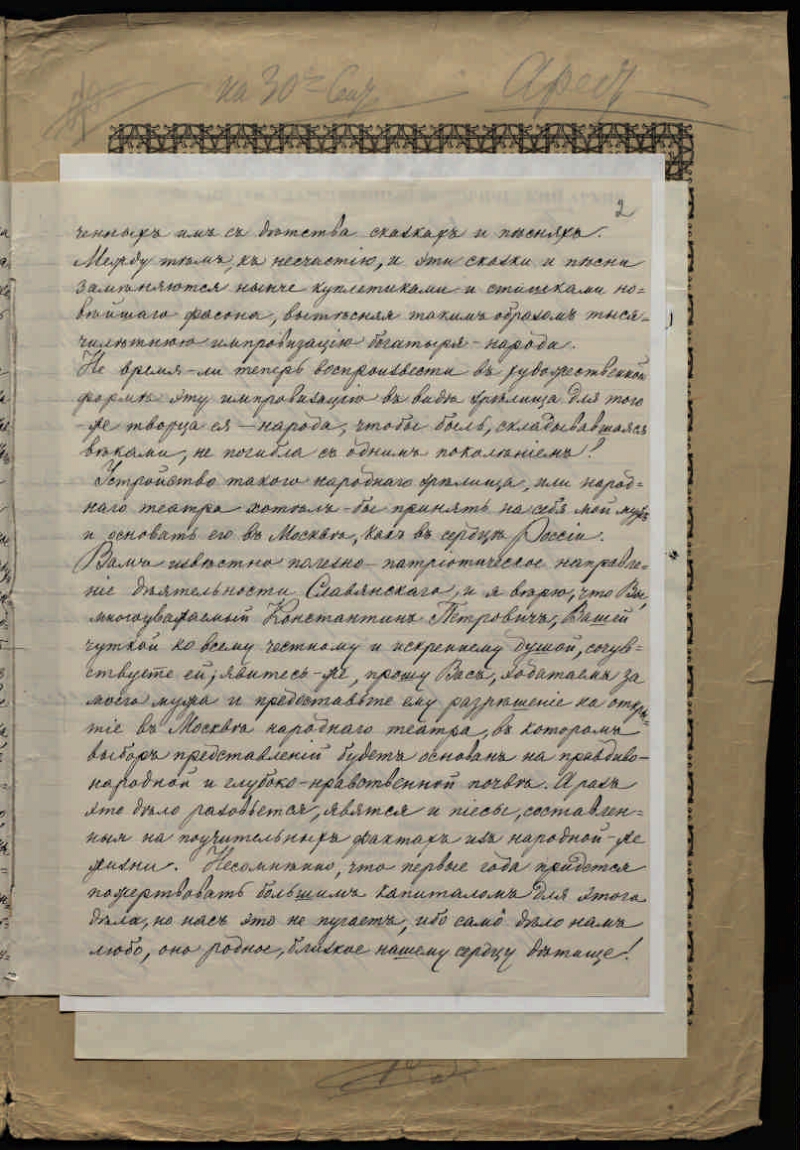 на 30<sup>е</sup> Сен
2
ченныхъ имъ съ дѣтства сказкахъ и пѣсняхъ.
Между тѣмъ, къ несчастію, и эти сказки и пѣсни
замѣняются нынче куплетиками и стишками но=
вѣйшаго фасона, вытѣсняя такимъ образомъ тыся=
чилѣтнюю импровизацію богатыря-народа.
Не время-ли теперь воспроизвести въ художественной
формѣ эту импровизацію въ видѣ зрѣлища для того
-же творца ея — народа, чтобы быль, складывавшаяся
вѣками, не погибла съ однимъ поколѣніемъ!
Устройство такого народнаго зрѣлища, или народ=
наго театра хотѣлъ-бы принять на себя мой мужъ
и основать его въ Москвѣ, какъ въ сердцѣ Россіи.
Вамъ извѣстно полезно-патріотическое направле=
ніе дѣятельности Славянскаго, и я вѣрю, что Вы,
многоуважаемый Константинъ Петровичъ, Вашей
чуткой ко всему честному и искреннему душой, сочув=
ствуете ей; явитесь-же, прошу Васъ, ходатаемъ за
моего мужа и предоставьте ему разрѣшеніе на откры=
тіе въ Москвѣ народнаго театра, въ которомъ
выборъ представленій будетъ основанъ на правдиво-
народной и глубоко-нравственной почвѣ. А разъ
это дѣло разовьется, явятся и піесы, составлен=
ныя на поучительныхъ фактахъ изъ народной-же
жизни. Несомнѣнно, что первые года придется
пожертвовать большимъ капиталомъ для этого
дѣла, но насъ это не пугаетъ, ибо само дѣло намъ
любо, оно родное, близкое нашему сердцу дѣтище!